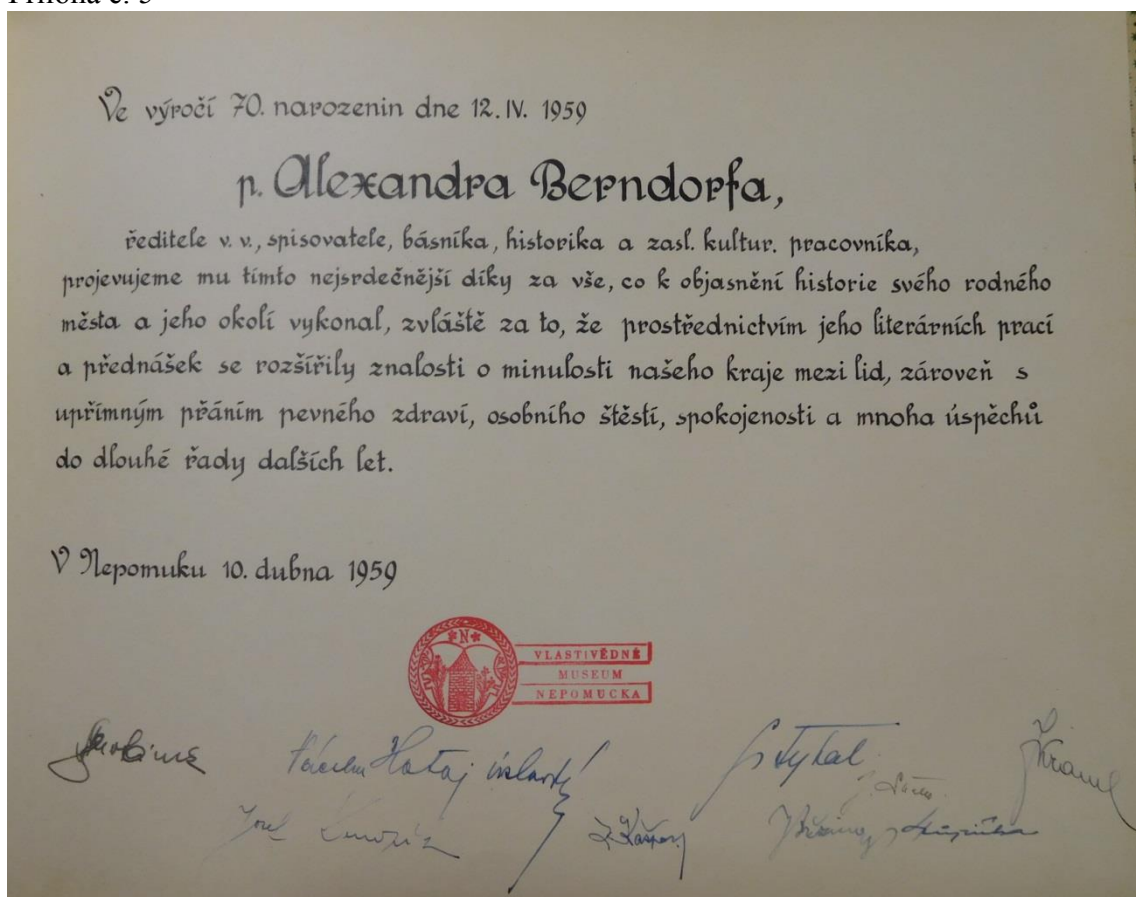 Ve výročí 70. narozenin dne 12. IV. 1959
p. Alexandra Berndorfa,
ředitele v. v., spisovatele, básníka, historika a zasl. kultur. pracovníka,
projevujeme mu tímto nejsrdečnější díky za vše, co k objasnění historie svého rodného
města a jeho okolí vykonal, zvláště za to, že prostřednictvím jeho literárních prací
a přednášek se rozšířily znalosti o minulosti našeho kraje mezi lid, zároveň s
upřímným přáním pevného zdraví, osobního štěstí, spokojenosti a mnoha úspěchů
do dlouhé řady dalších let.
V Nepomuku 10. dubna 1959
*N*
VLASTIVĚDNÉ
MUSEUM
NEPOMUCKA
Hataj
Josef